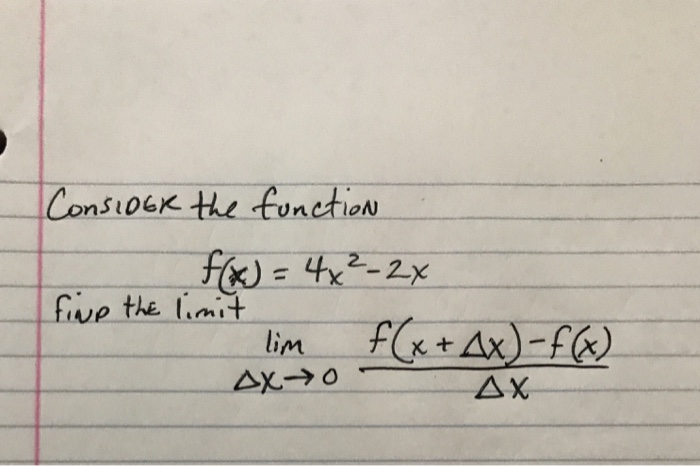 Consider the function
f(x) = 4x²-2x
find the limit
lim Δx→0 f(x + Δx) - f(x) / Δx